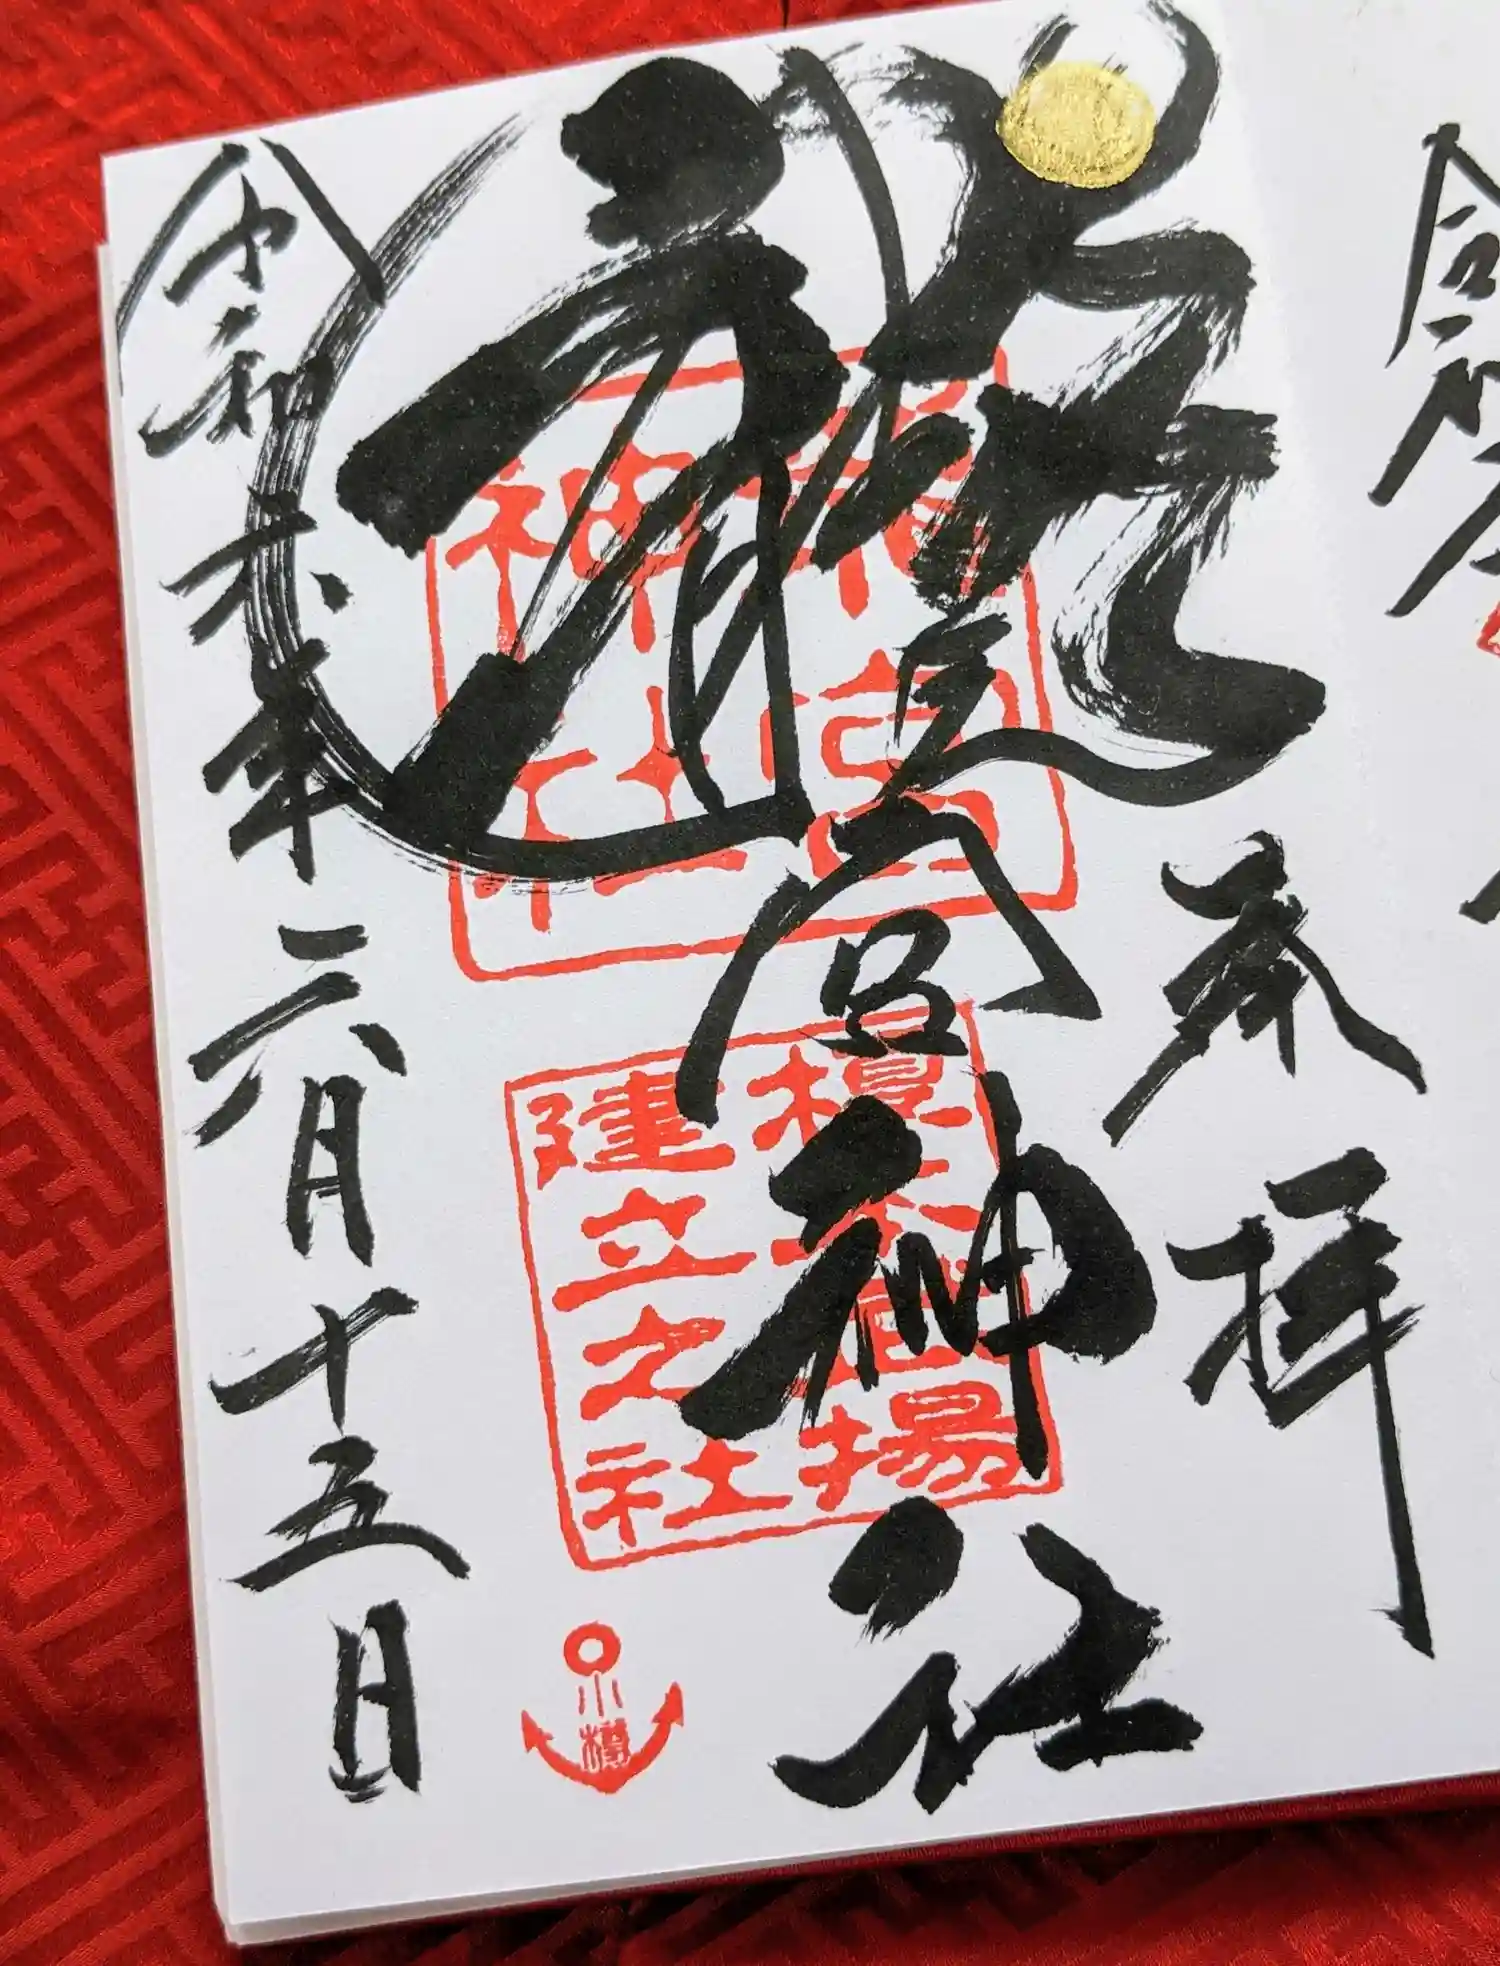 奉拝
龍宮神社
令和六年六月十五日
龍宮
神社
榎本武揚
建立之社
小樽